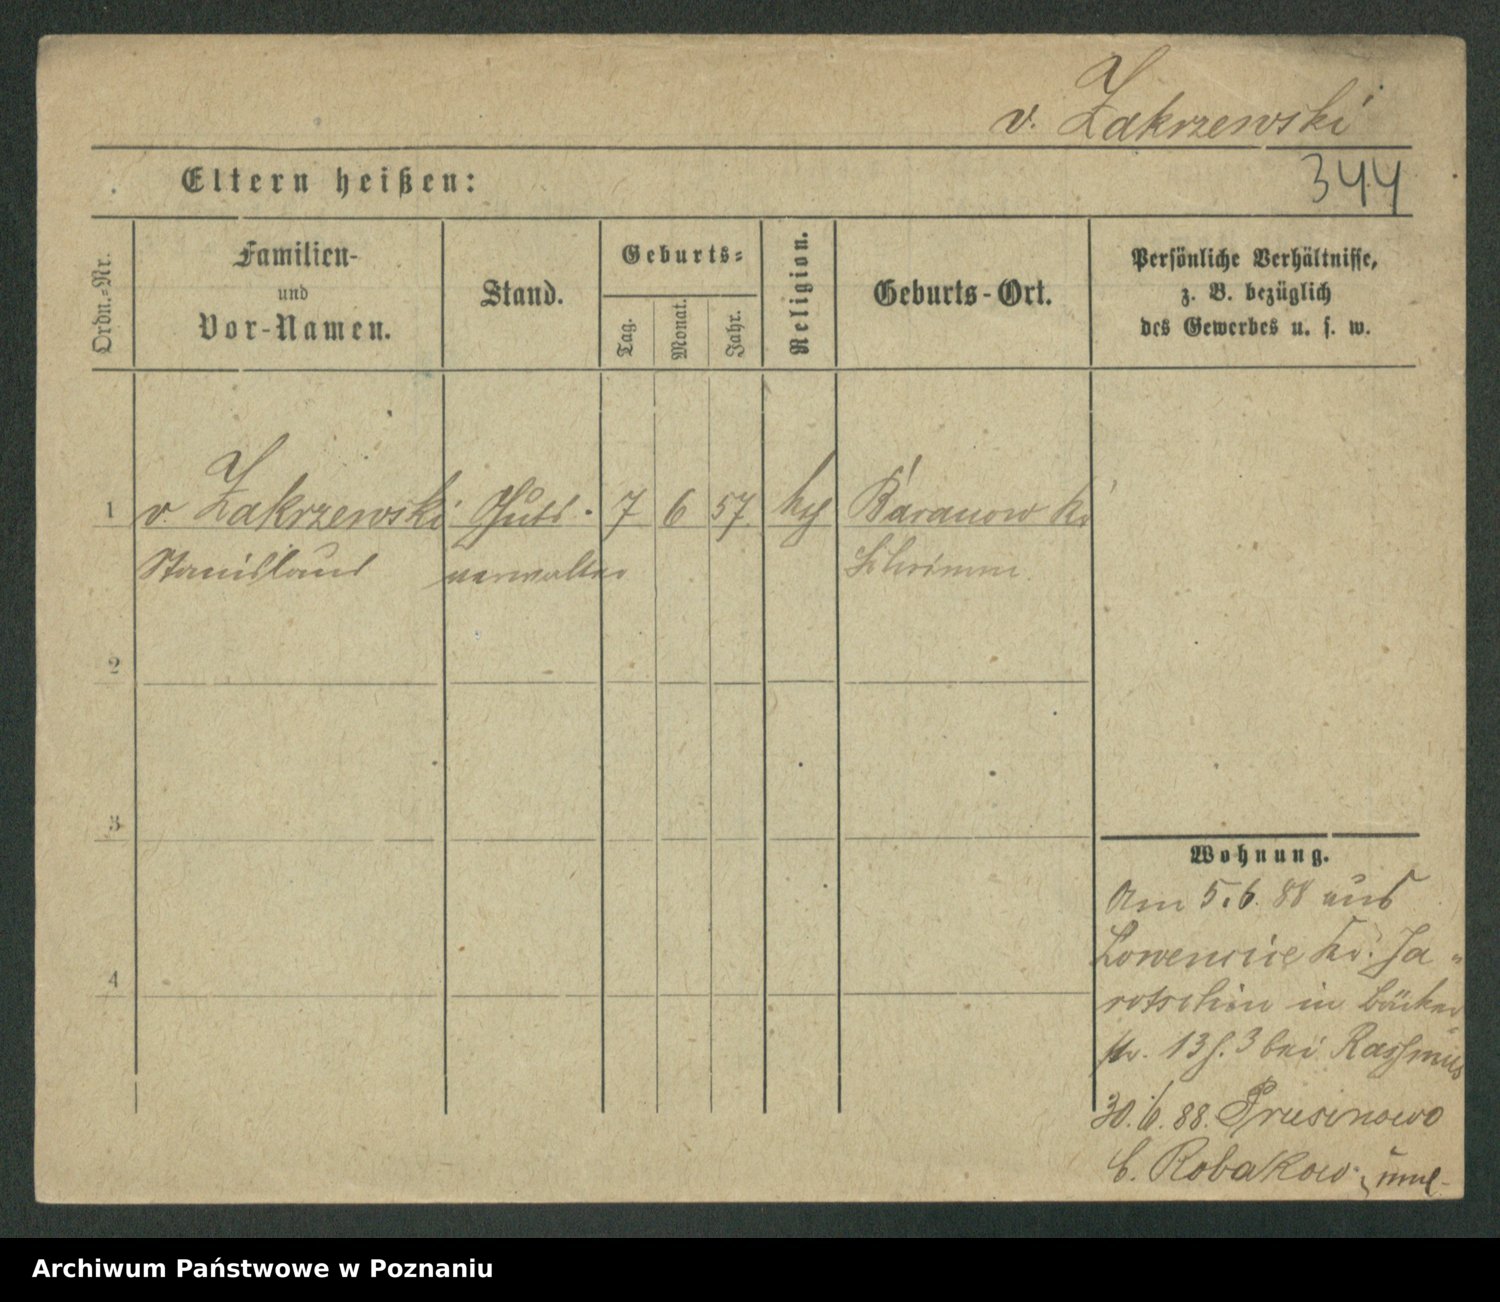 v. Zakrzewski
Eltern heißen:
344
Ordn.-Nr.
Familien-
und
Vor-Namen.
Stand.
Geburts-
Tag.
Monat.
Jahr.
Religion.
Geburts-Ort.
Persönliche Verhältnisse,
z. B. bezüglich
des Gewerbes u. s. w.
1 v. Zakrzewski Guts- 7 6 57 Baranow Kr
Stanislaus verwalter Schrimm.
2
3
4
Wohnung.
Am 5.6.88 aus
Lowencice Kr. Ja-
rotschin in Bäcker
str. 13 bei
30.6.88. Prusinowo
b. Robakow
Archiwum Państwowe w Poznaniu